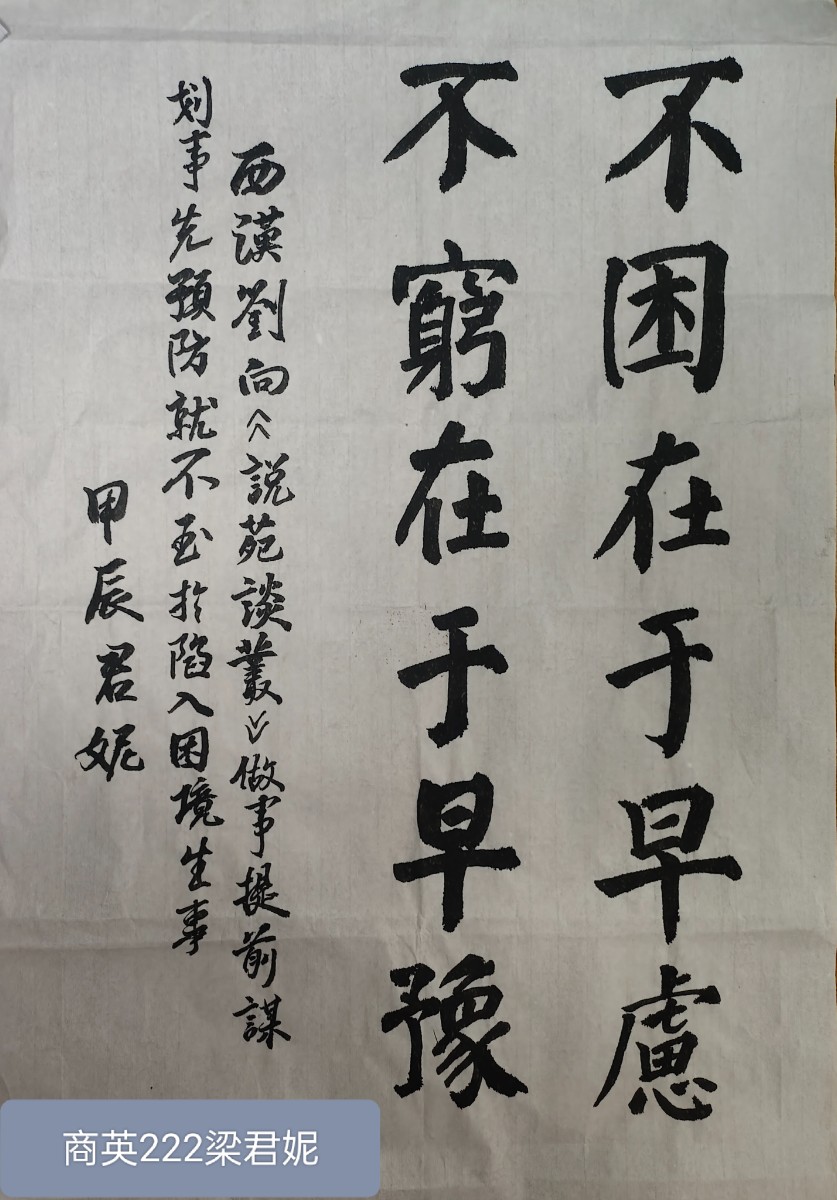 不困在于早慮
不窮在于早豫
西漢劉向《說苑談叢》做事提前謀
划事先預防就不至於陷入困境生事
甲辰君妮
商英222梁君妮